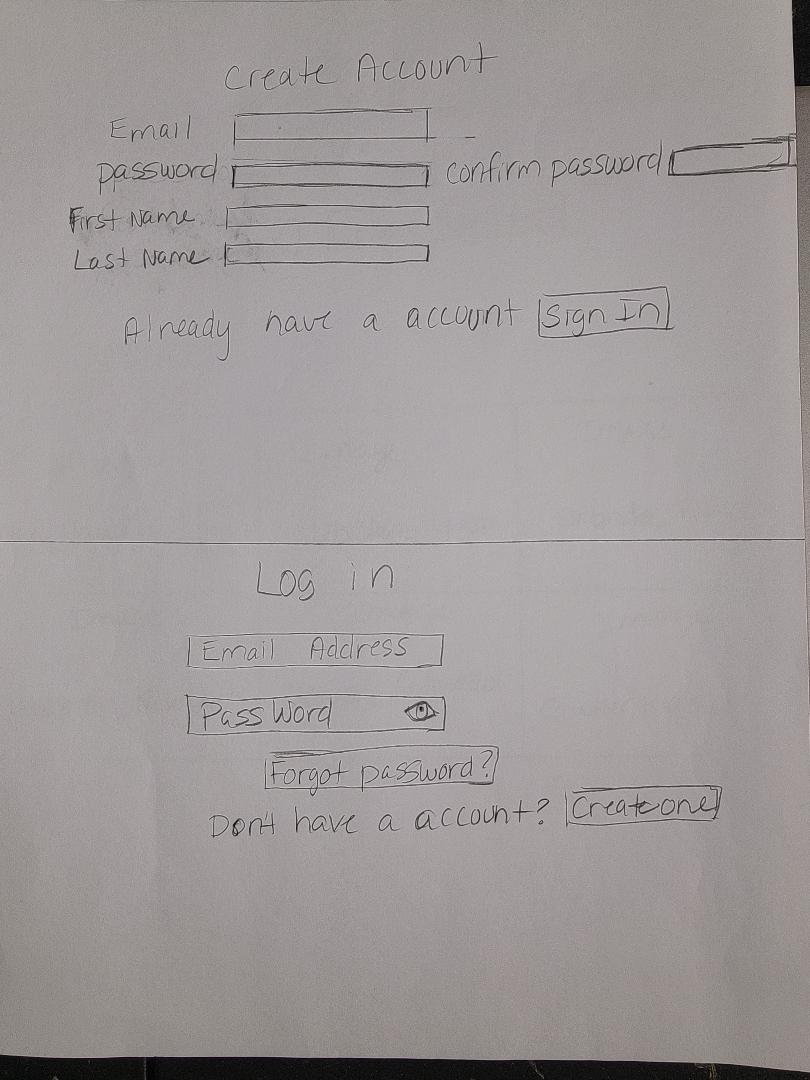 Create Account
Email
password confirm password
First Name
Last Name
Already have a account Sign In
Log in
Email Address
PassWord
Forgot password?
Don't have a account? Create one